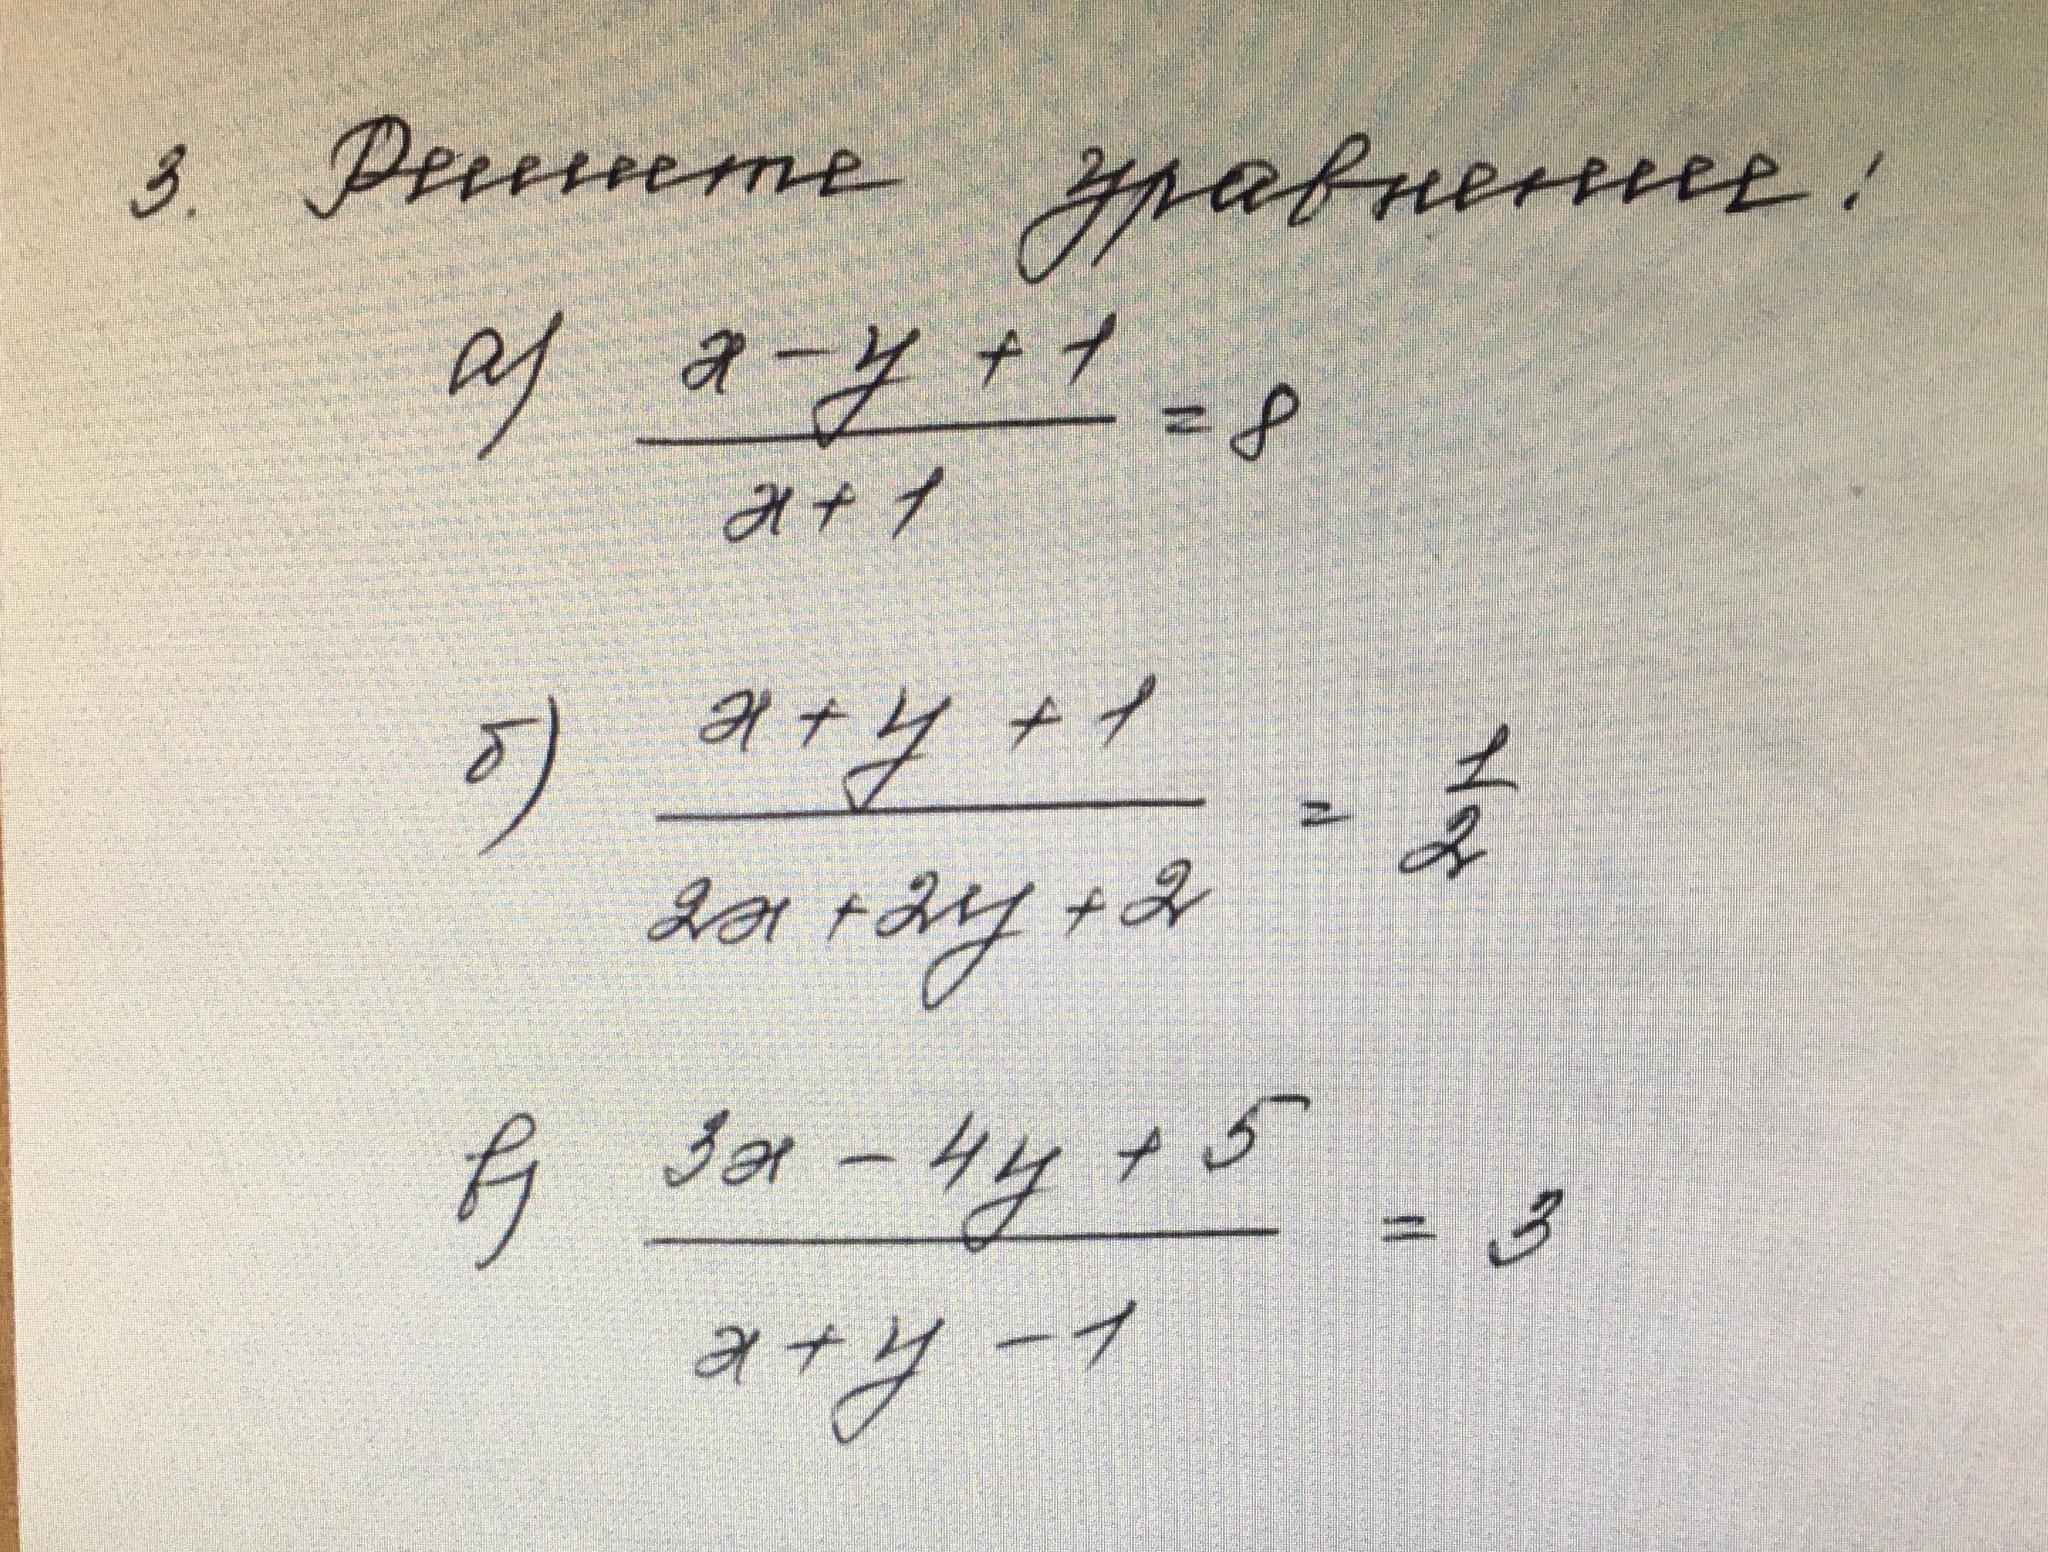 3. Решите уравнение:
а) x - y + 1
= 8
x + 1
б) x + y + 1
= 1/2
2x + 2y + 2
в) 3x - 4y + 5
= 3
x + y - 1